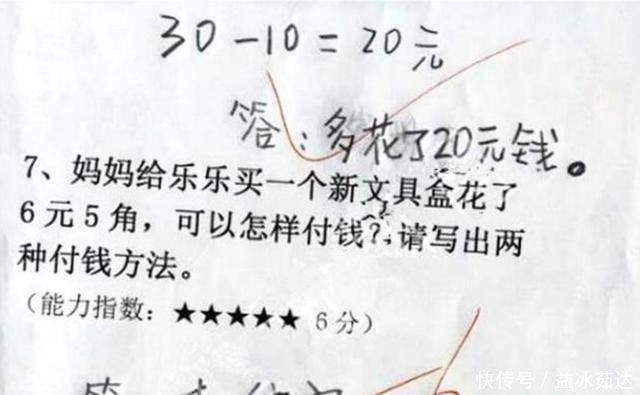 30-10=20元
答：多花了20元钱。
7、妈妈给乐乐买一个新文具盒花了
6元5角，可以怎样付钱？请写出两
种付钱方法。
（能力指数：★★★★★ 6分）
快传号／益冰茹达